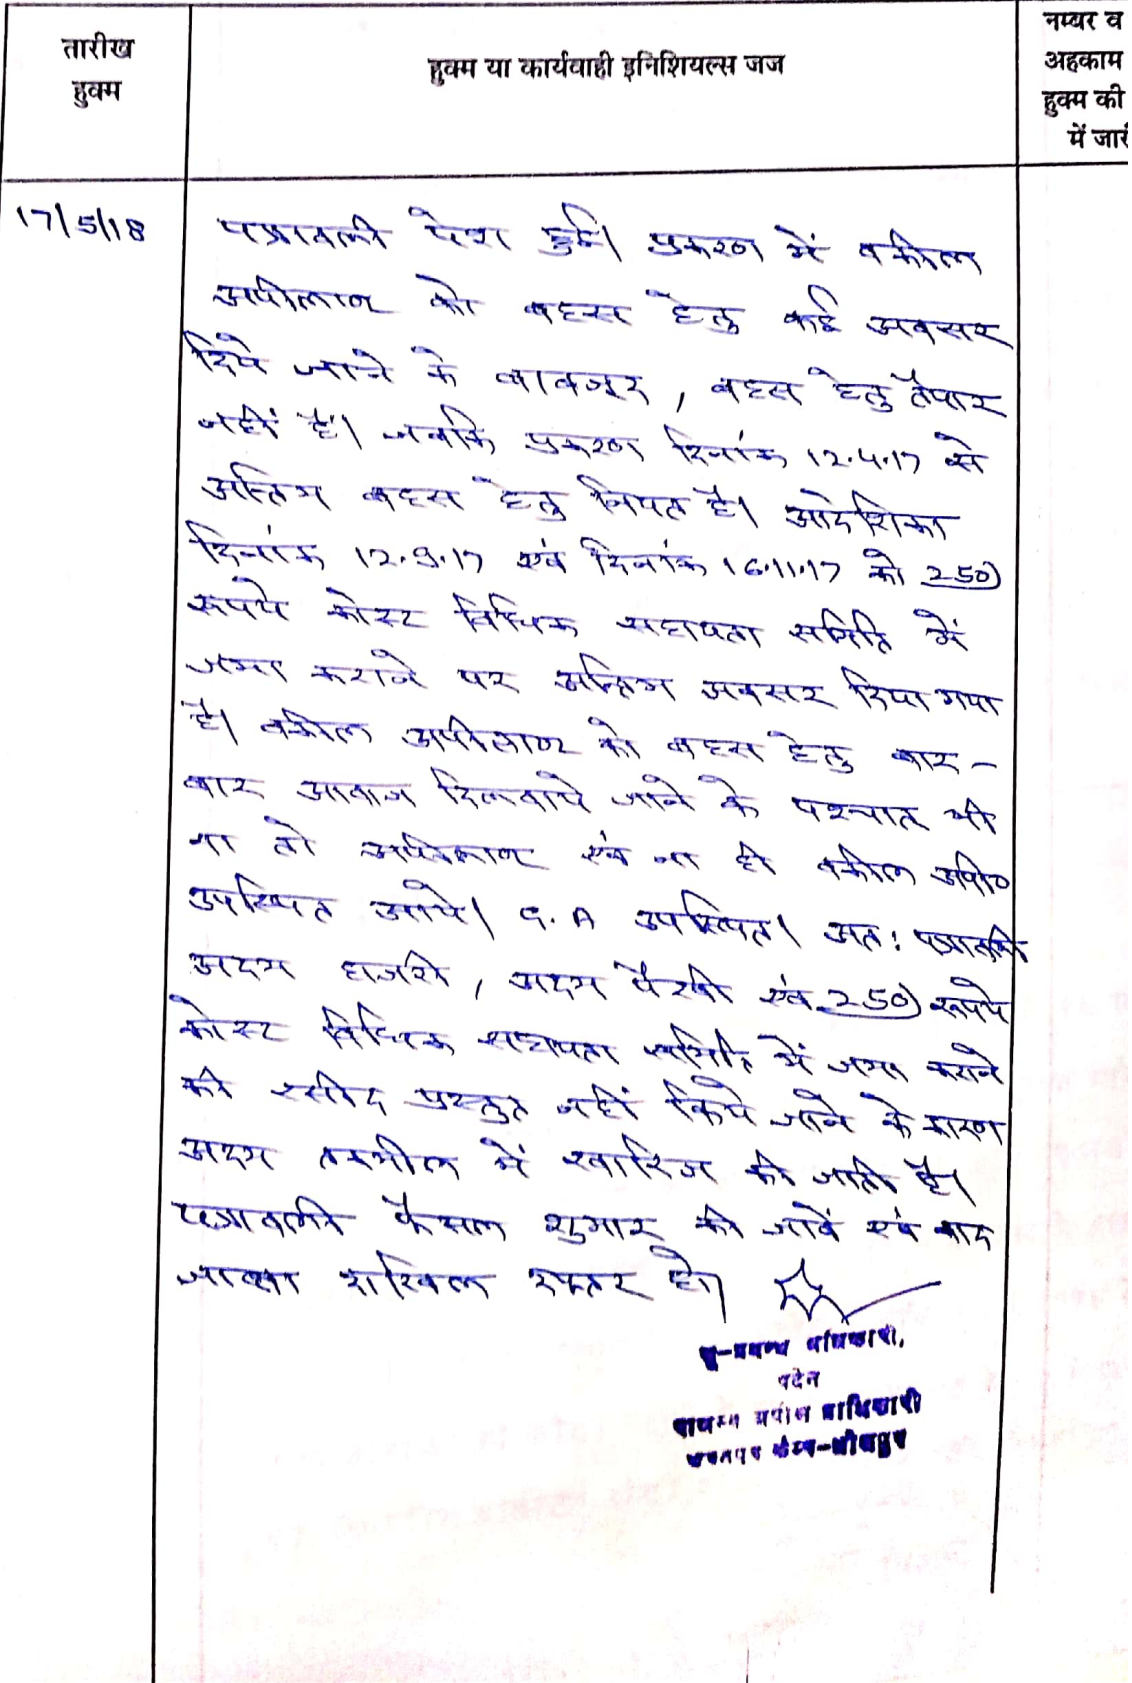 तारीख
हुक्म
हुक्म या कार्यवाही इनिशियल्स जज
नम्बर व
अहकाम
हुक्म की
में जारी
17/5/18
पत्रावली पेश हुई। प्रकरण में वकील
अपीलाण्ट को बहस हेतु कई अवसर
दिये जाने के बावजूद, बहस हेतु तैयार
नहीं है। जबकि प्रकरण दिनांक 12.4.17 से
अन्तिम बहस हेतु नियत है। आदेशिका
दिनांक 12.9.17 एवं दिनांक 16.11.17 को 250)
रूपये कोस्ट विधिक सहायता समिति में
जमा कराने पर अन्तिम अवसर दिया गया
है। वकील अपीलाण्ट को बहस हेतु बार-
बार आवाज दिलवाये जाने के पश्चात भी
ना तो अपीलाण्ट एवं ना ही वकील अपी०
उपस्थित आये। G.A उपस्थित। अत: पत्रावली
अदम हाजरी, अदम पैरवी एवं 250) रूपये
कोस्ट विधिक सहायता समिति में जमा कराने
की रसीद प्रस्तुत नहीं किये जाने के कारण
अदम तकमील में खारिज की जाती है।
पत्रावली फैसल शुमार की जावें एवं बाद
जाब्ता दाखिल दफ्तर हो।
भू-प्रबन्ध अधिकारी,
पदेन
राजस्व अपील प्राधिकारी
कैम्प-